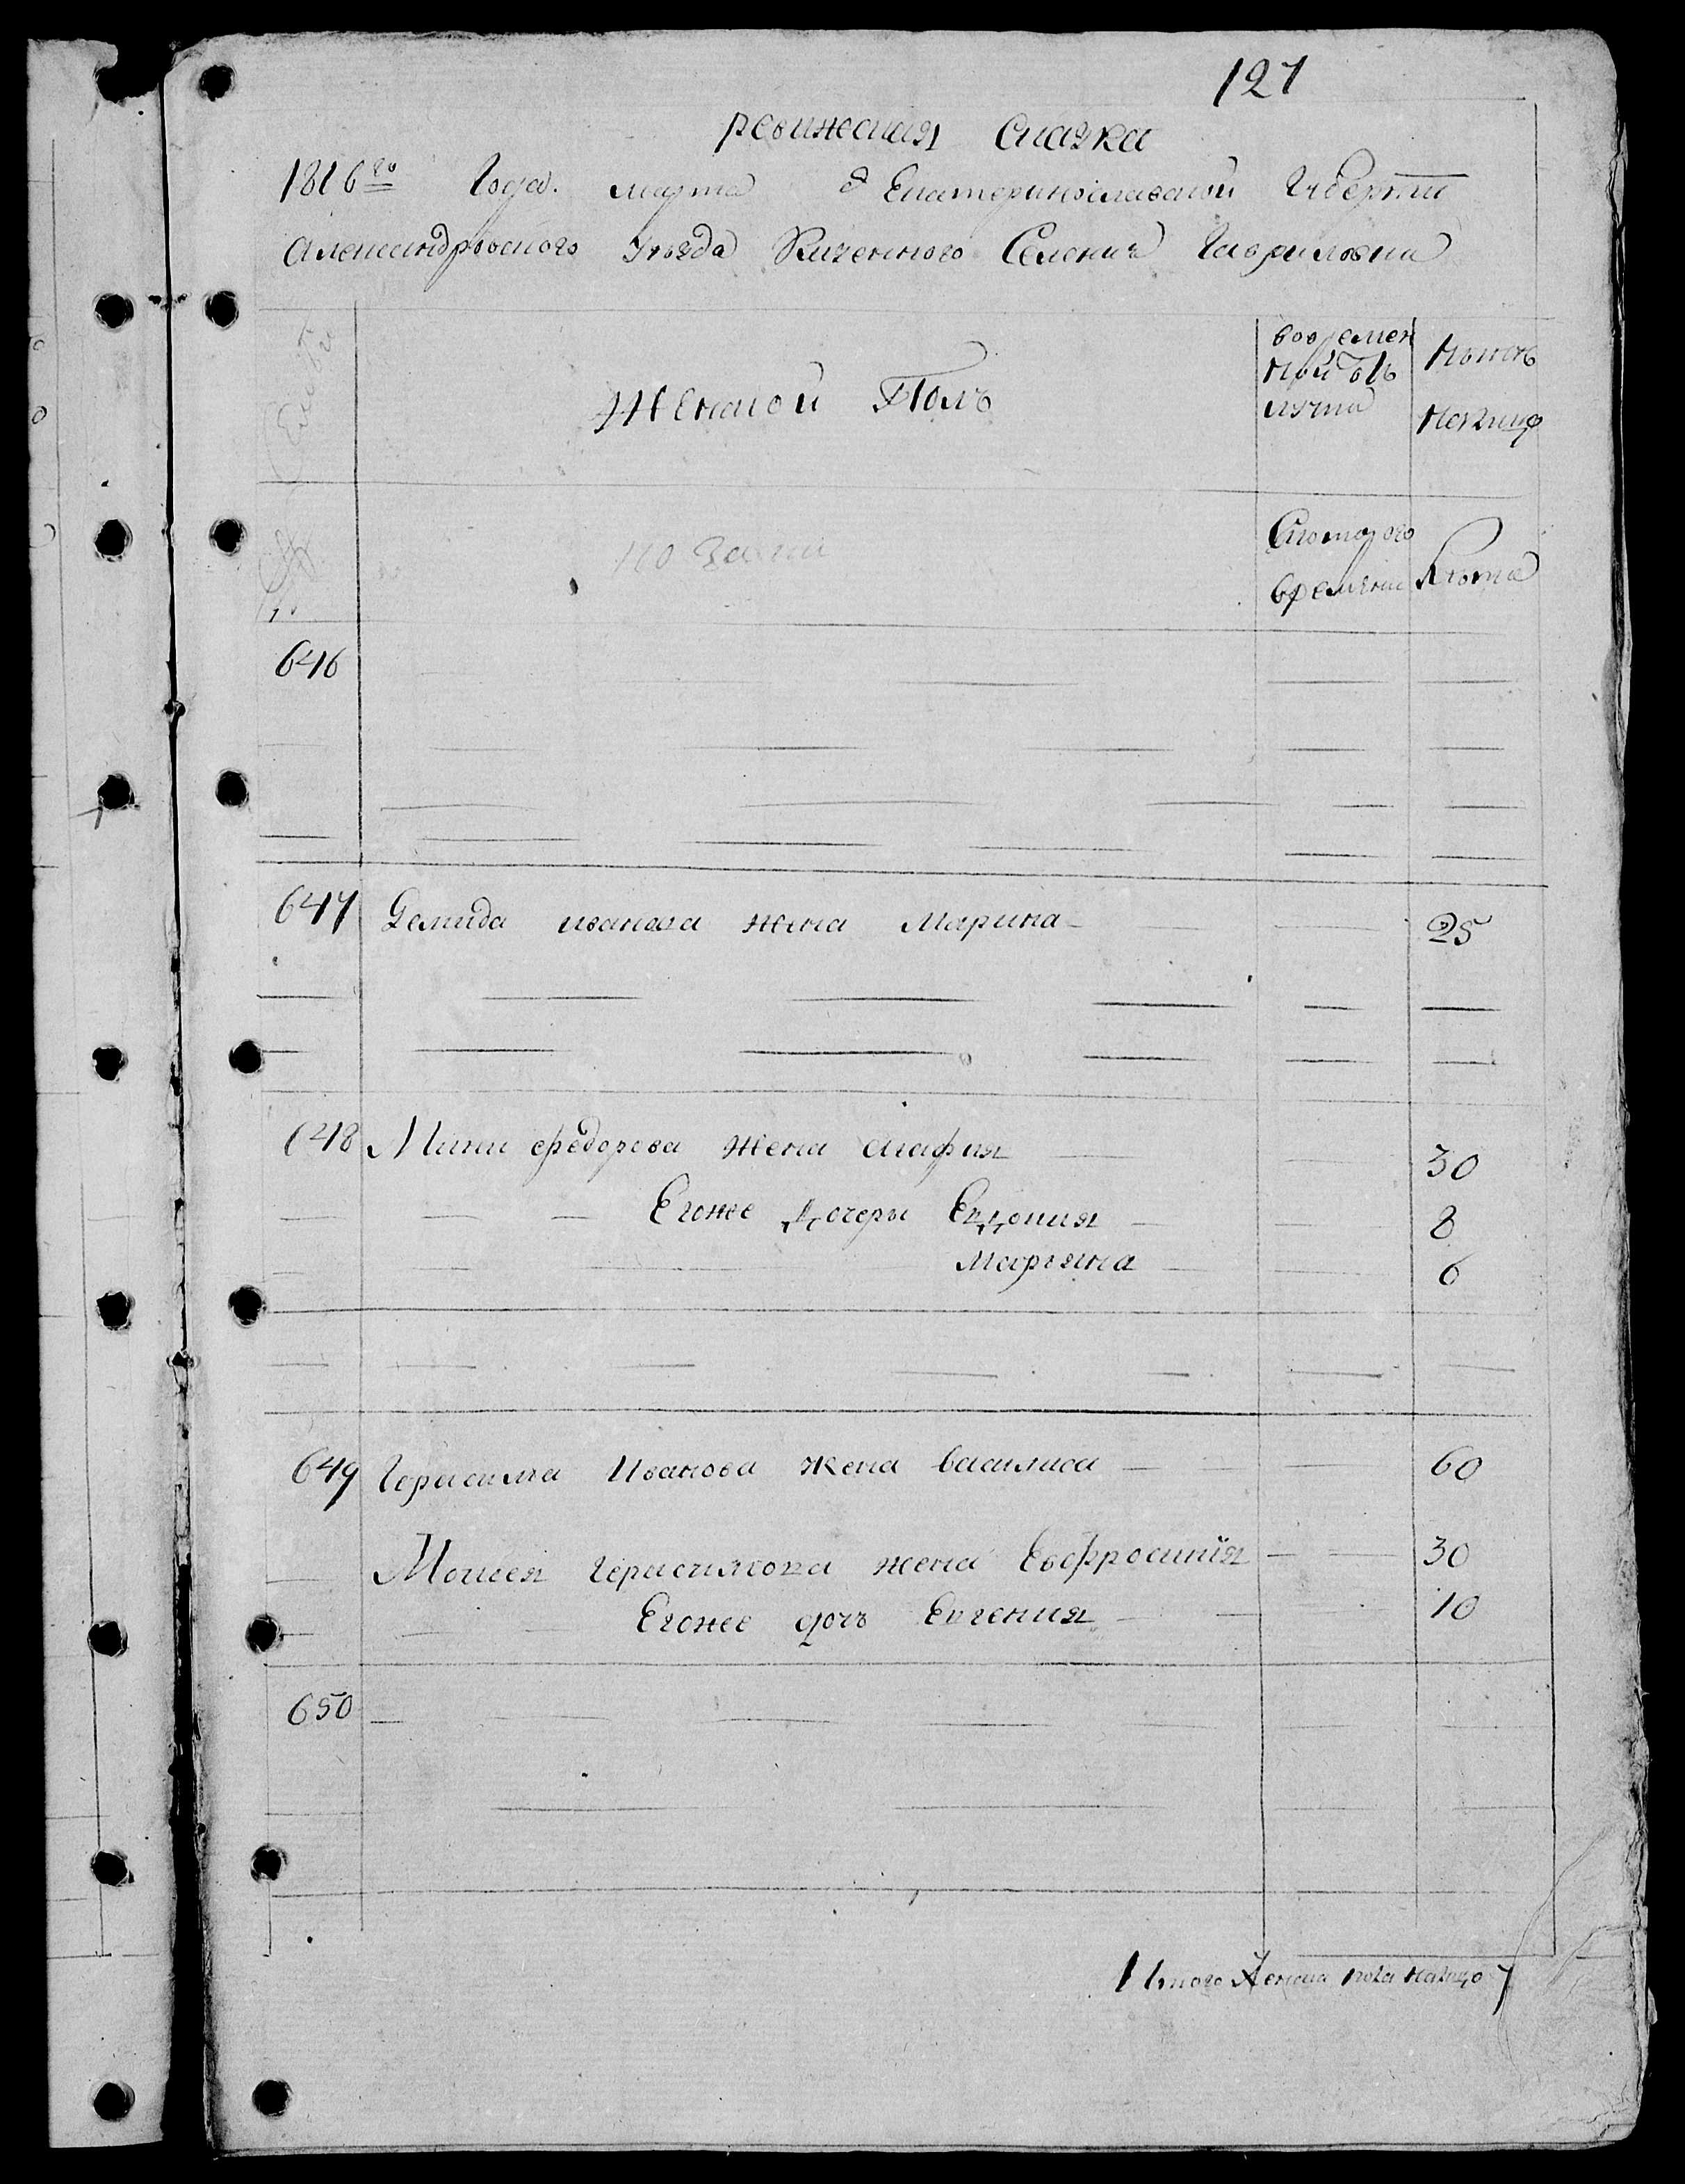 127
ревижская сказка
1816го Года. марта Екатеринославской Губернии
Александровского Уезда Казенного Селения Гавриловки
Женской Полъ
вовремен
ной отъ
лучке
Ныне
налицо
Съкотораго
времяни
Лъта
646
647 Демида иванова жена Марина 25
648 федорова жена агафия 30
Егоже дочеры Евдокия 8
Марьяна 6
649 Герасима Иванова жена василиса 60
Моисея герасимова жена Евфросинія 30
Егоже дочъ Евгения 10
650
Итого женска пола налицо 7